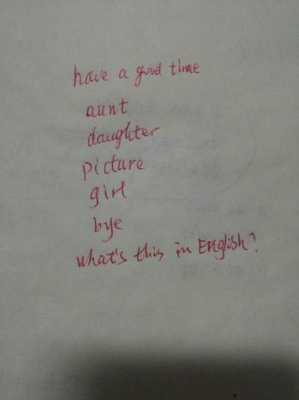 have a good time
aunt
daughter
picture
girl
bye
what's this in English?